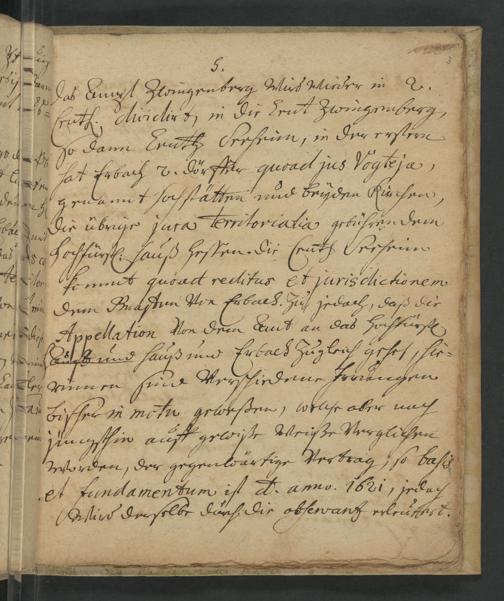 5.
das Ambt Zwingenberg wird wieder in 2.
Centh dividirt, in die Cent Zwingenberg,
so dann Centh Seeheim, in der erstern
hat Erbach 2. dörffer quoad jus Vogteja,
genannt Hochstätten und beyden Kirchen,
die übrige jura Territorialia gebühren dem
Hochfürstl. Hauß Hessen. die Centh Seeheim
kommt quoad reditus et jurisdictionem
dem Grafen Von Erbach zu, jedoch, daß die
Appellation Von dem Amt an das Hochfürstl.
Hauß und Erbach Zugleich gehet, hie-
rinnen sind Verschiedene Irrungen
bißher in motu geweßen, welche aber noch
jüngsthin auff gewiße Weiße Verglichen
worden, der gegenwärtige Vertrag, so basis
et fundamentum ist d. anno. 1621, jedoch
wird derselbe durch die observantz erleutert.